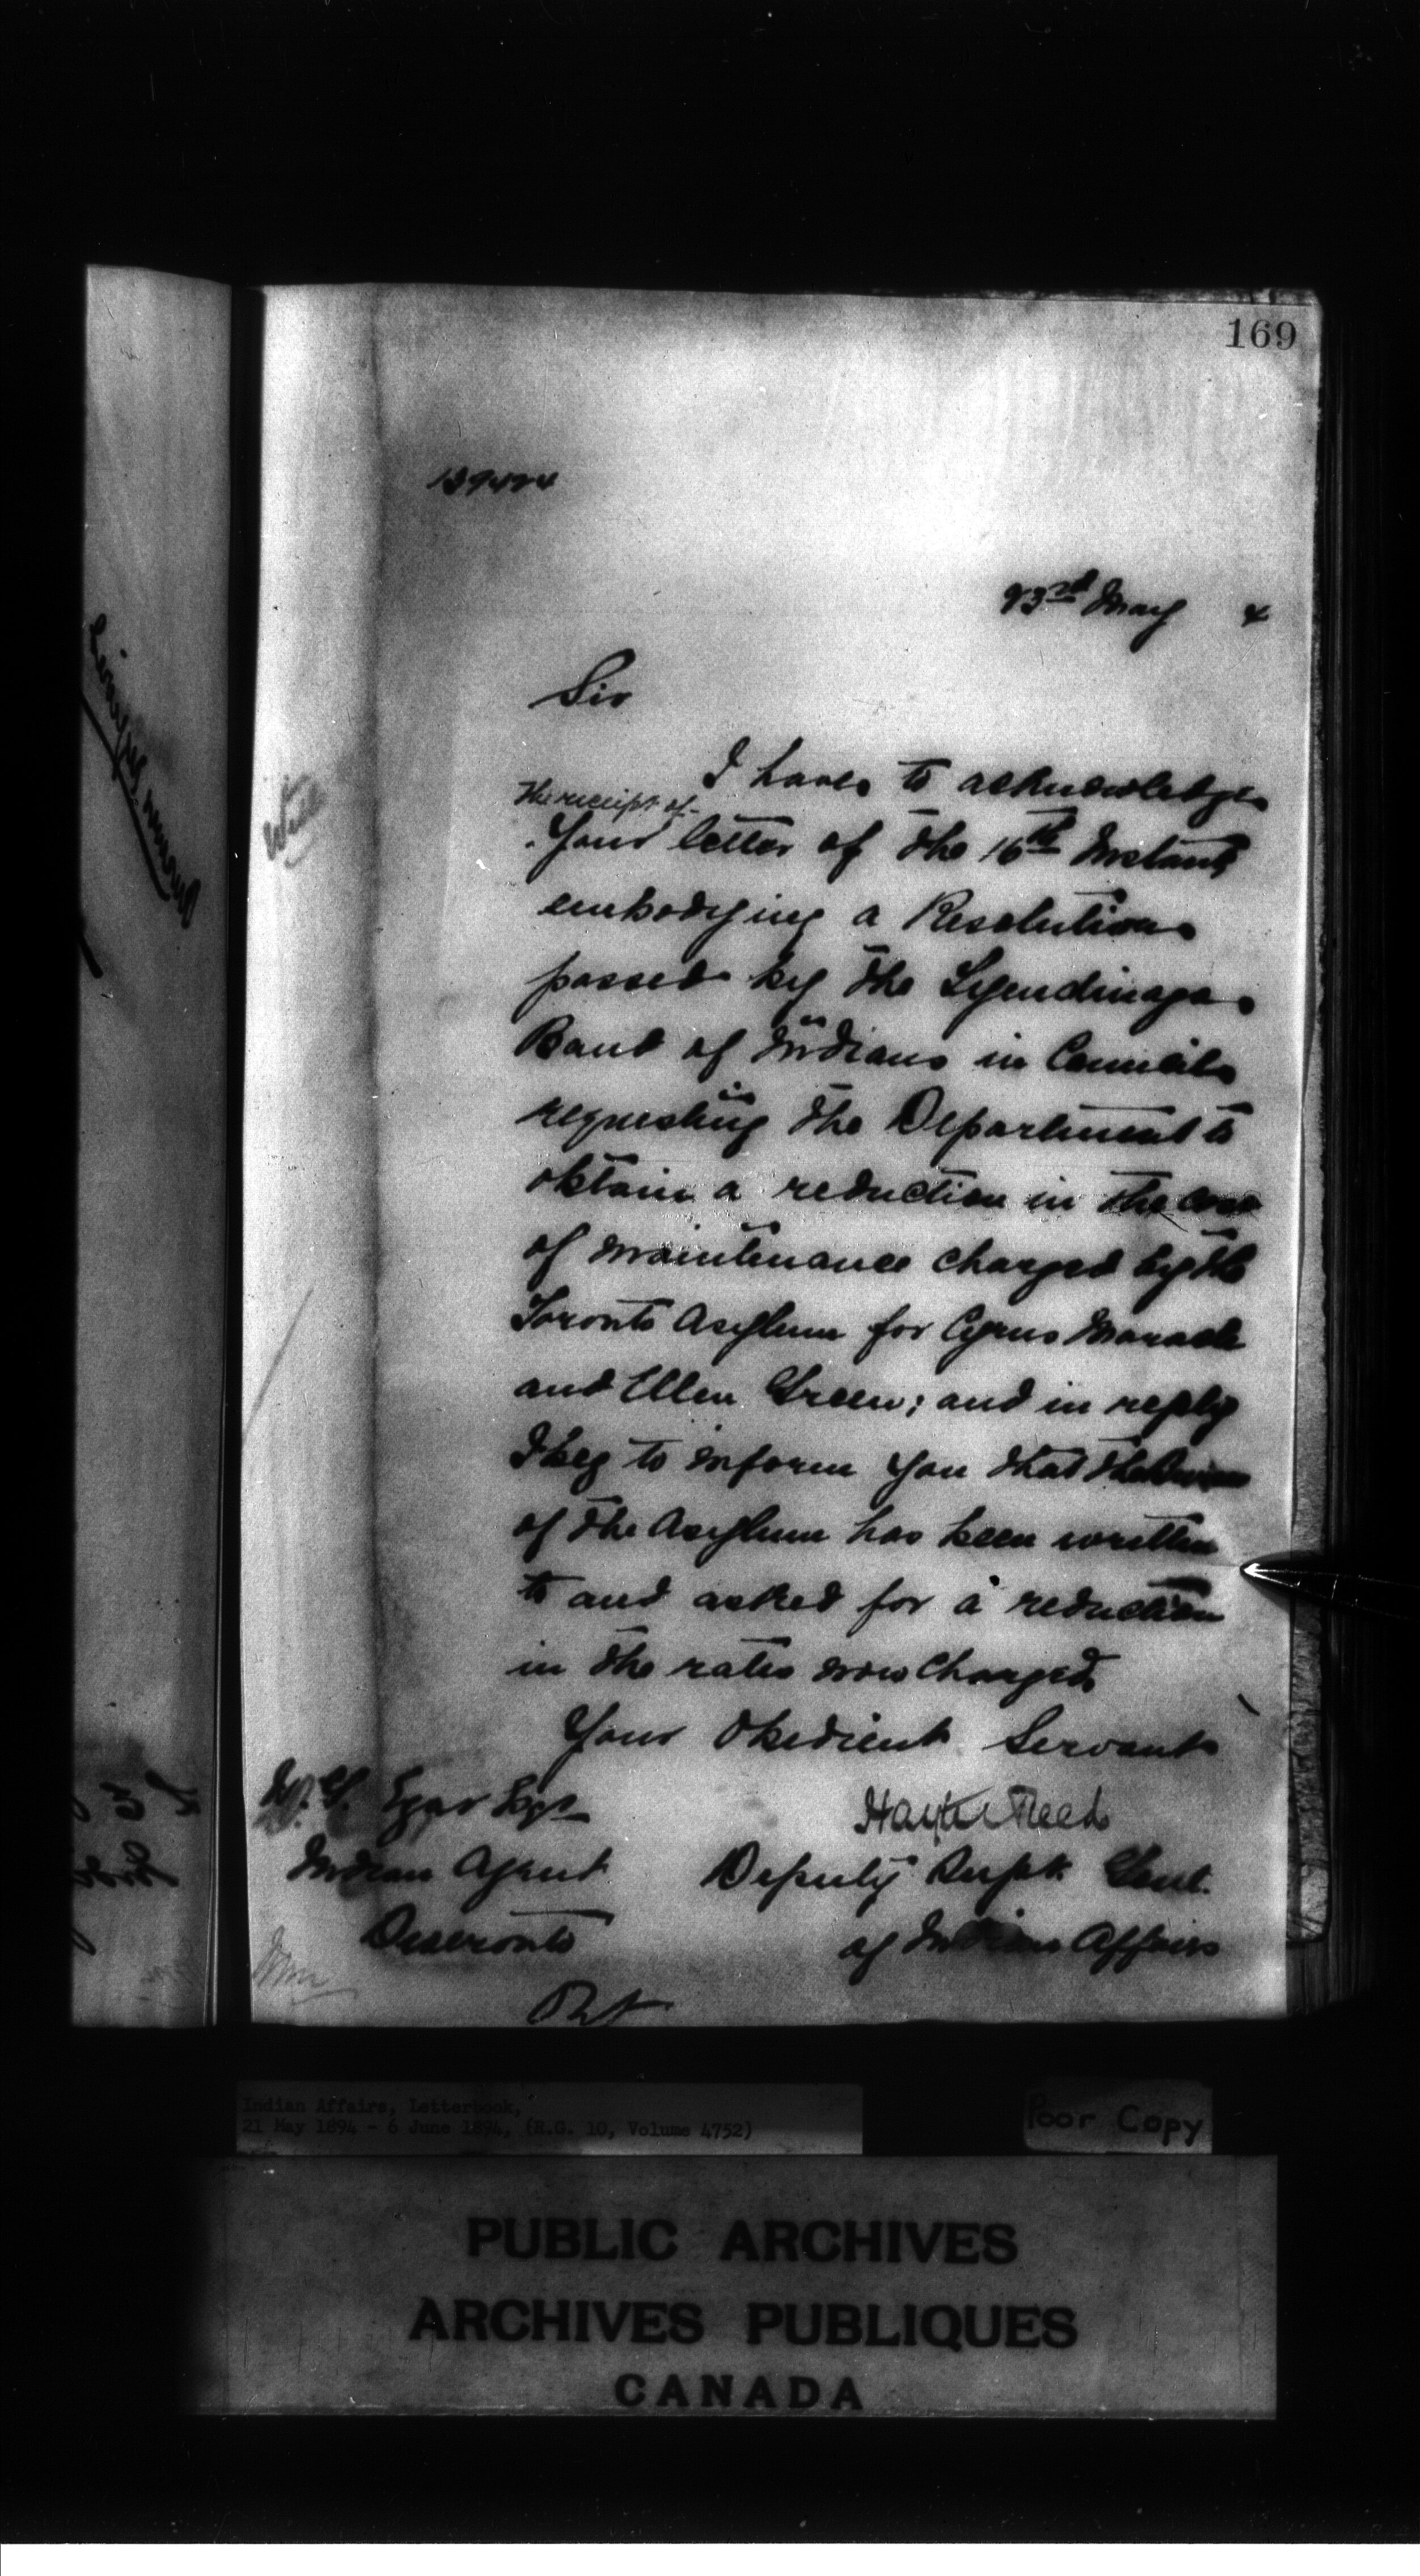 169
139424
23rd May 4
Sir
I have to acknowledge
the receipt of
your letter of the 16th Instant
embodying a Resolution
passed by the Tyendinaga
Band of Indians in Council
requesting the Department to
obtain a reduction in the cost
of maintenance charged by the
Toronto Asylum for Cyrus Maracle
and Ellen Green; and in reply
I beg to inform you that the
of the Asylum has been written
to and asked for a reduction
in the rates now charged
Your Obedient Servant
Hayter Reed
Indian Agent
Deputy Supt. Genl.
Deseronto
of Indian Affairs
Indian Affairs, Letterbook,
21 May 1894 - 6 June 1894, (R.G. 10, Volume 4752)
Poor Copy
PUBLIC ARCHIVES
ARCHIVES PUBLIQUES
CANADA